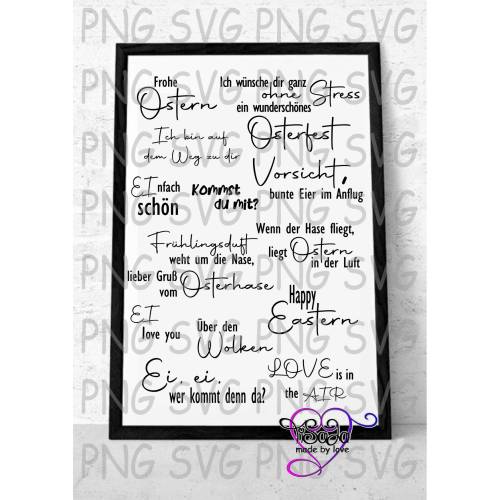 PNG SVG PNG SVG
Frohe
Ostern
Ich wünsche dir ganz
ohne Stress
ein wunderschönes
Osterfest
Ich bin auf
dem Weg zu dir
Vorsicht,
bunte Eier im Anflug
EInfach
schön
kommst
du mit?
Wenn der Hase fliegt,
liegt Ostern
in der Luft
Frühlingsduft
weht um die Nase,
lieber Gruß
vom Osterhase
Happy
Eastern
EI
love you
Über den
Wolken
Ei, ei,
wer kommt denn da?
LOVE is in
the AIR
made by love
PNG SVG PNG SVG